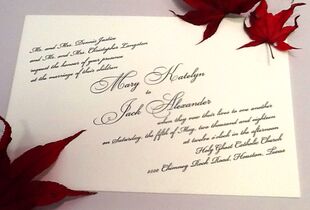 Mr. and Mrs. Dennis Justice
and
Mr. and Mrs. Christopher Livingston
request the honour of your presence
at the marriage of their children
Mary Katelyn
to
Jack Alexander
when they vow their lives to one another
on Saturday, the fifth of May, two thousand and eighteen
at twelve o'clock in the afternoon
Holy Ghost Catholic Church
Chimney Rock Road, Houston, Texas